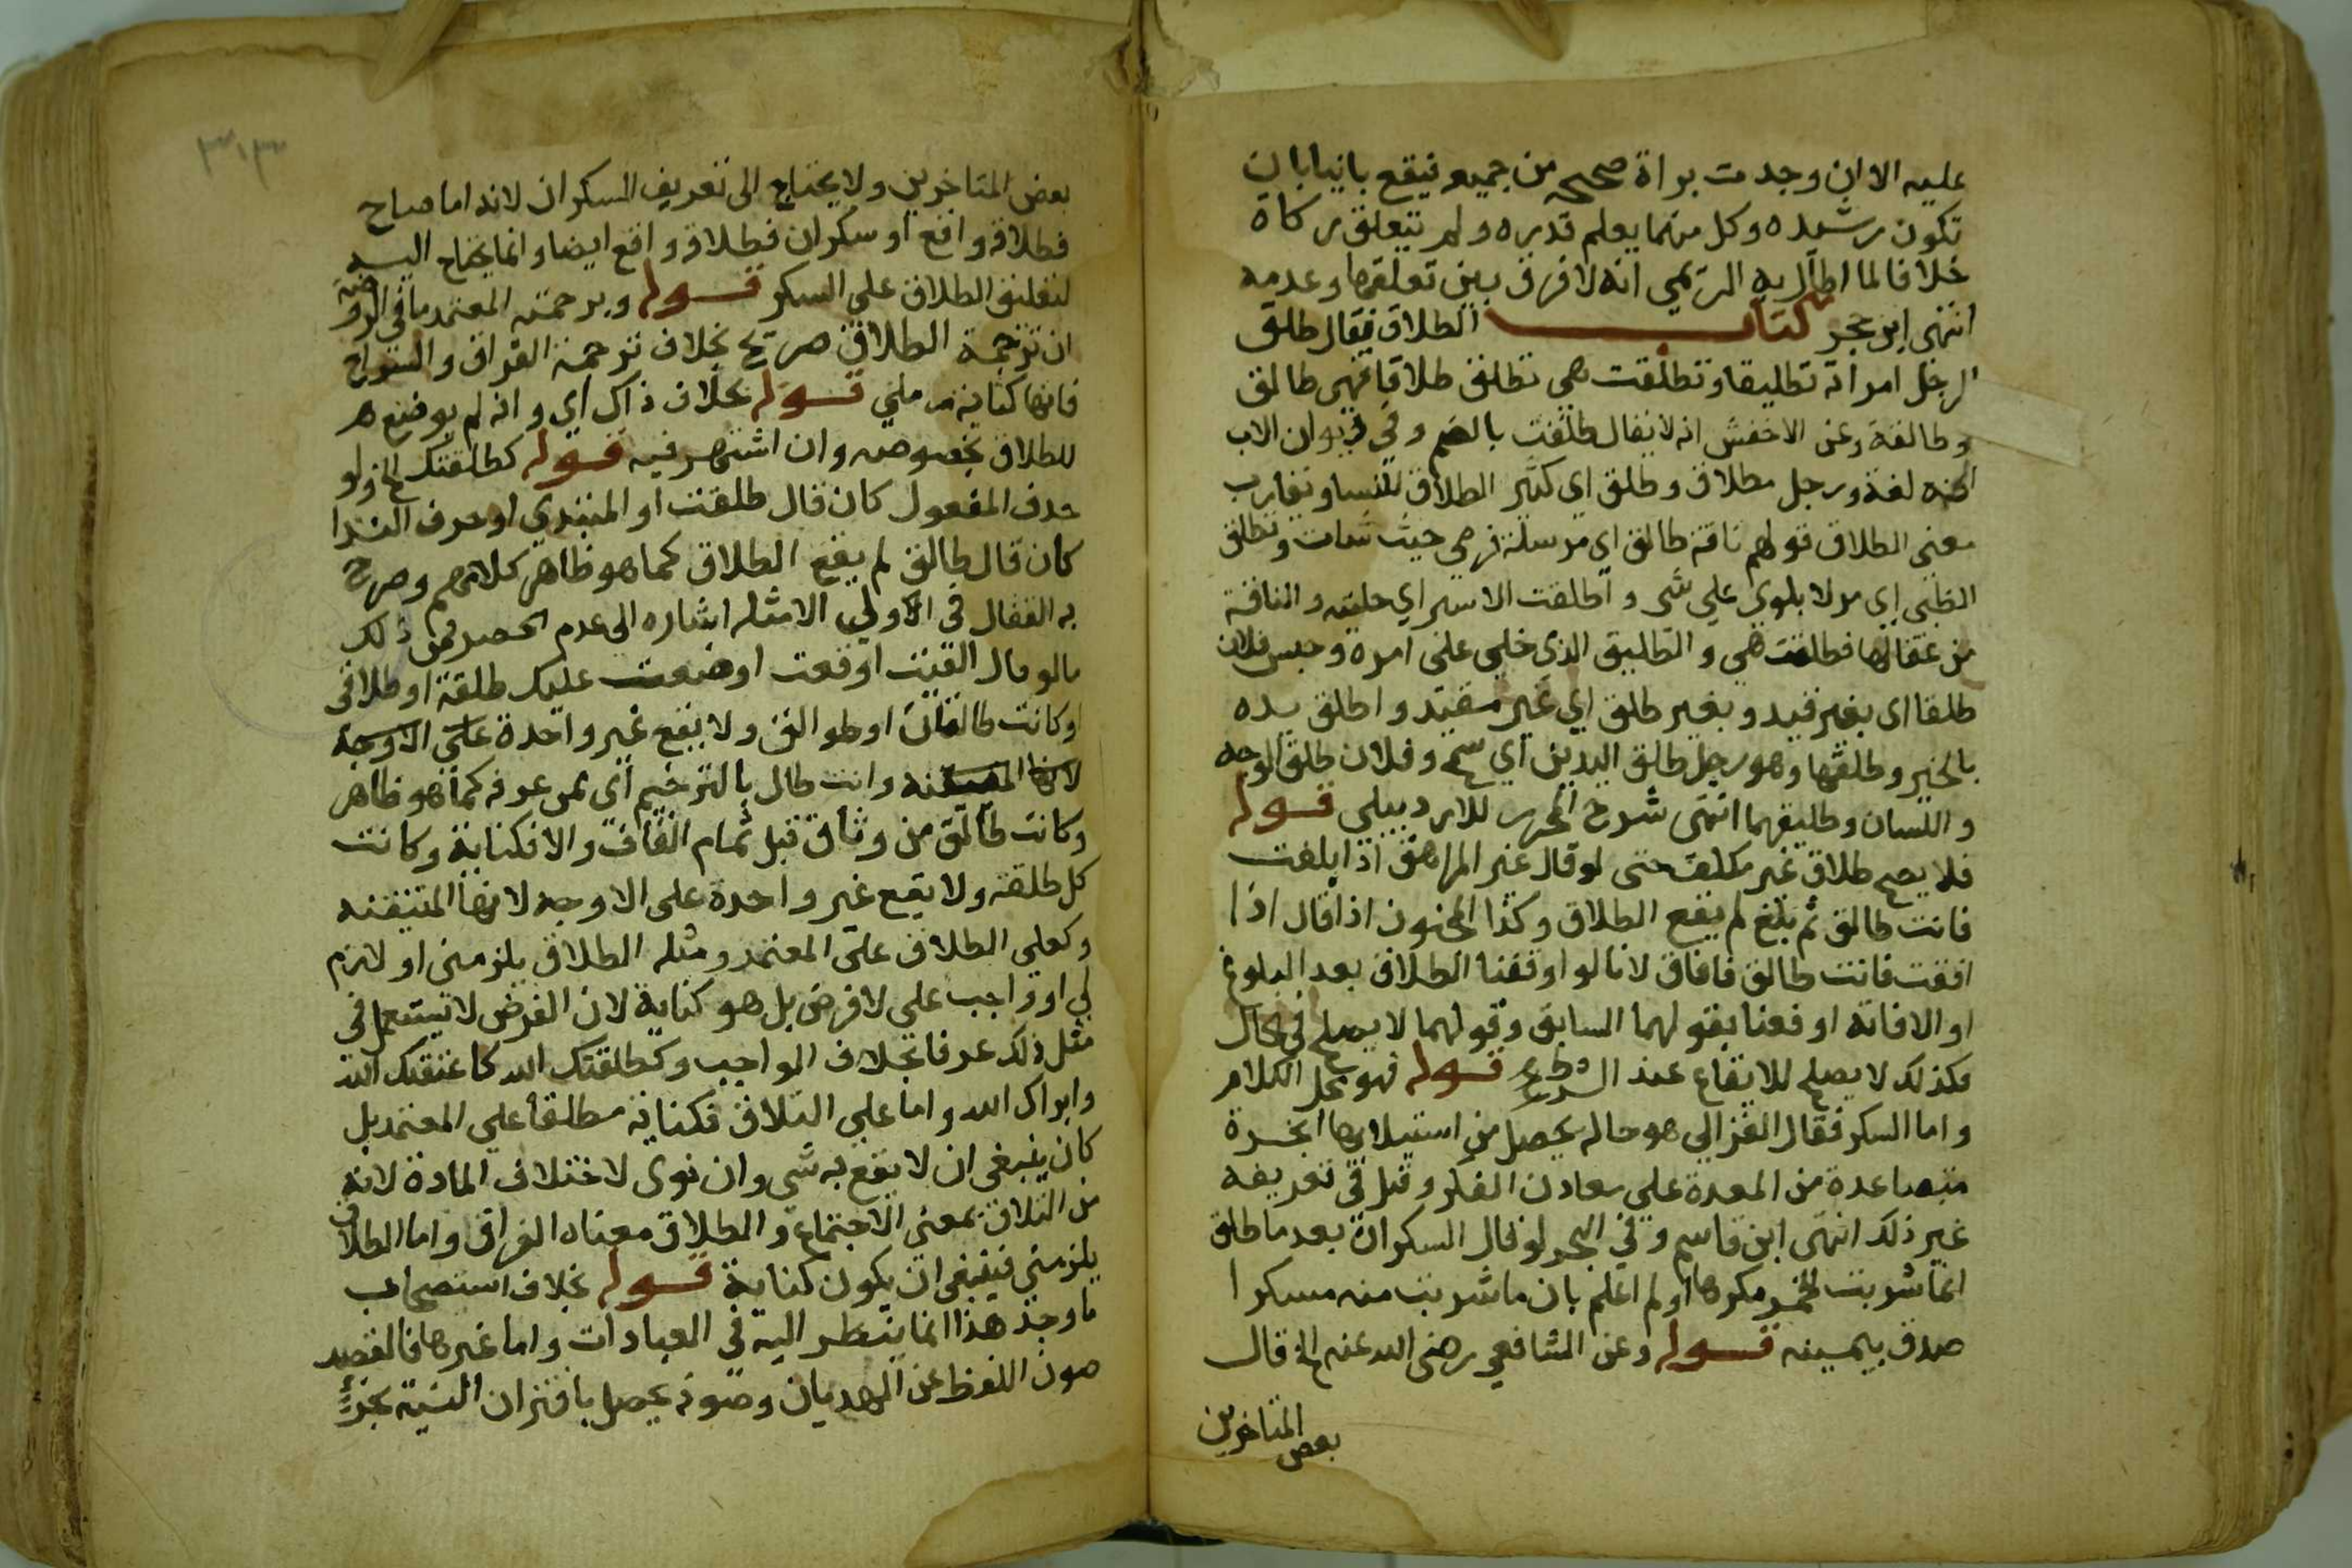 عليه الا ان وجدت براة صحيحه من جميعه فيقع باينا بان
تكون رشيده وكل منهما يعلم قدره ولم تتعلق به زكاة
خلافا لما اطال به الريمي انه لا فرق بين تعلقها وعدمه
انتهى ابن حجر كتاب الطلاق يقال طلق
الرجل امراته تطليقا وتطلقت هي تطلق طلاقا فهي طالق
وطالقة وعن الاخفش انه لا يقال طلقت بالضم وفي ديوان الادب
انه لغة ورجل مطلاق وطلق اي كثير الطلاق للنسا وتقارب
معنى الطلاق قولهم ناقة طالق اي مرسلة ترعى حيث شات وتطلق
الظبي اي مر لا يلوي على شي واطلقت الاسير اي خليته والناقة
من عقالها فطلقت هي والطليق الذي خلي على امره وحبس فلان
طلقا اي بغير قيد وبعير طلق اي غير مقيد واطلق يده
بالخير وطلقها وهو رجل طلق اليدين اي سمح وفلان طلق الوجه
واللسان وطليقهما انتهى شرح المحرر للاردبيلي قوله
فلا يصح طلاق غير مكلف حتى لو قال غير المراهق اذا بلغت
فانت طالق ثم بلغ لم يقع الطلاق وكذا المجنون اذا قال اذا
افقت فانت طالق فافاق لانا لو اوقفنا الطلاق بعد البلوغ
او الافاقة اوقعنا بقولهما السابق وقولهما لا يصلح في الحال
فكذلك لا يصلح للايقاع عند الشرط قوله فهو محل الكلام
واما السكر فقال الغزالي هو حاله يحصل من استيلايها ابخرة
متصاعدة من المعدة على معادن الفكر وقيل في تعريفه
غير ذلك انتهى ابن قاسم وفي البحر لو قال السكران بعد ما طلق
انما شربت الخمر مكرها او لم اعلم بان ما شربت منه مسكرا
صدق بيمينه قوله وعن الشافعي رضى الله عنه الخ قال
بعض المتاخرين
٣١٣
بعض المتاخرين ولا يحتاج الى تعريف السكران لانه اما صاح
فطلاقه واقع او سكران فطلاقه واقع ايضا وانما يحتاج اليه
لتعليق الطلاق على السكر قوله وبرجمته المعتمد ما في الروضة
ان ترجمة الطلاق صريح بخلاف ترجمة الفراق والسراح
فانها كناية م رملي قوله بخلاف ذاك اي وانه لم يوضع
للطلاق بخصوصه وان اشتهر فيه قوله كطلقتك الخ ولو
حذف المفعول كان قال طلقت او المبتدي او حرف الندا
كان قال طالق لم يقع الطلاق كما هو ظاهر كلامهم وصرح
به القفال في الاولى الامثله اشاره الى عدم الحصر فمن ذلك
ما لو قال القيت اوقعت اوضعت عليك طلقة او طلاقى
او كانت طالقان او طوالق ولا يقع غير واحدة على الاوجه
لانها المتيقنه وانت طال بالترخيم اي ممن عرفه كما هو ظاهر
وكانت طالق من وثاق قبل تمام القاف والا فكناية وكانت
كل طلقة ولا يقع غير واحدة على الاوجه لانها المتيقنه
وكعلي الطلاق على المعتمد ومثله الطلاق يلزمنى او لازم
لي او واجب علي لا فرض بل هو كناية لان الفرض لا يستعمل في
مثل ذلك عرفا بخلاف الواجب وكطلقتك الله كاعتقك الله
وابراك الله واما علي التلاق فكناية مطلقا علي المعتمد بل
كان ينبغي ان لا يقع به شي وان نوى لاختلاف المادة لانه
من التلاق بمعنى الاجتماع والطلاق معناه الفراق واما الطلاق
يلزمني فينبغى ان يكون كناية قوله بخلاف استصحاب
ما وجد هذا انما ينظر اليه في العبادات واما غيرها فالقصد
صون اللفظ عن الهديان وصونه يحصل باقتران النية بجزء